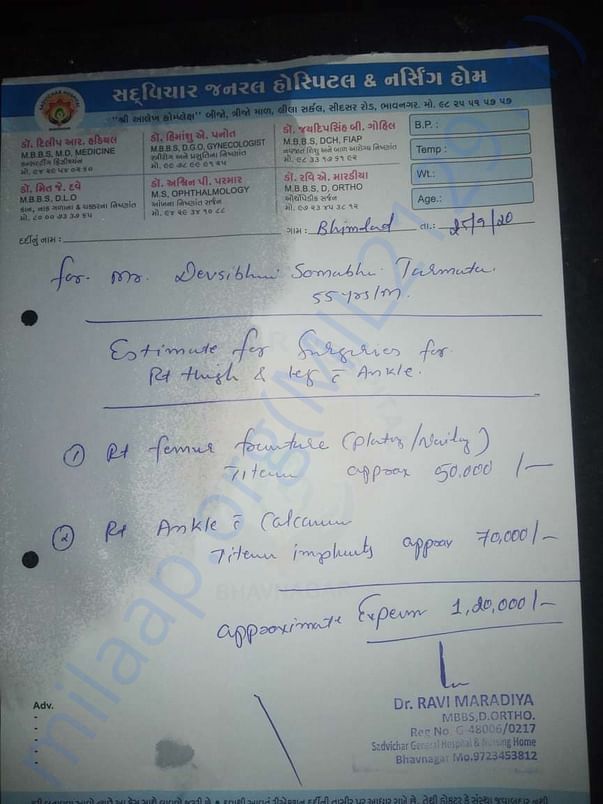 સદ્વિચાર જનરલ હોસ્પિટલ & નર્સિંગ હોમ
"શ્રી આલેખ કોમ્પ્લેક્ષ" બીજો, ત્રીજો માળ, લીલા સર્કલ, સીદસર રોડ, ભાવનગર. મો. ૯૨ ૨૫ ૫૧ ૫૭ ૫૭
ડૉ. દિલીપ આર. કઠિયલ
M.B.B.S, M.D, MEDICINE
ડૉ. હિમાંશુ એ. પનોત
M.B.B.S, D.G.O, GYNECOLOGIST
સ્ત્રીરોગ અને પ્રસુતિના નિષ્ણાંત
ડૉ. જયદિપસિંહ બી. ગોહિલ
M.B.B.S, DCH, FIAP
B.P. :
Temp :
ડૉ. મિત જે. દવે
M.B.B.S, D.L.O
કાન, નાક ગળાના & ચક્કરના નિષ્ણાંત
ડૉ. અશ્વિન પી. પરમાર
M.S, OPHTHALMOLOGY
આંખના નિષ્ણાંત સર્જન
ડૉ. રવિ એ. મારડીયા
M.B.B.S, D, ORTHO
ઓર્થોપેડીક સર્જન
Wt.:
Age.:
દર્દીનું નામ :
ગામ : Bhimdad તા.: 25/9/20
for. Mr. Devsibhai Somabhai Tarmata.
55 yrs/M.
Estimate for Surgeries for
Rt thigh & leg c̄ Ankle.
① Rt femur fracture (plating/Nailing)
approx 50.000 /-
② Rt Ankle c̄
implants approx 70,000/-
approximate 1,20,000/-
Dr. RAVI MARADIYA
MBBS,D.ORTHO.
Reg No. G-48006/0217
Sadvichar General Hospital & Nursing Home
Bhavnagar Mo.9723453812
Adv.
BHAVNAGAR
milaap.org